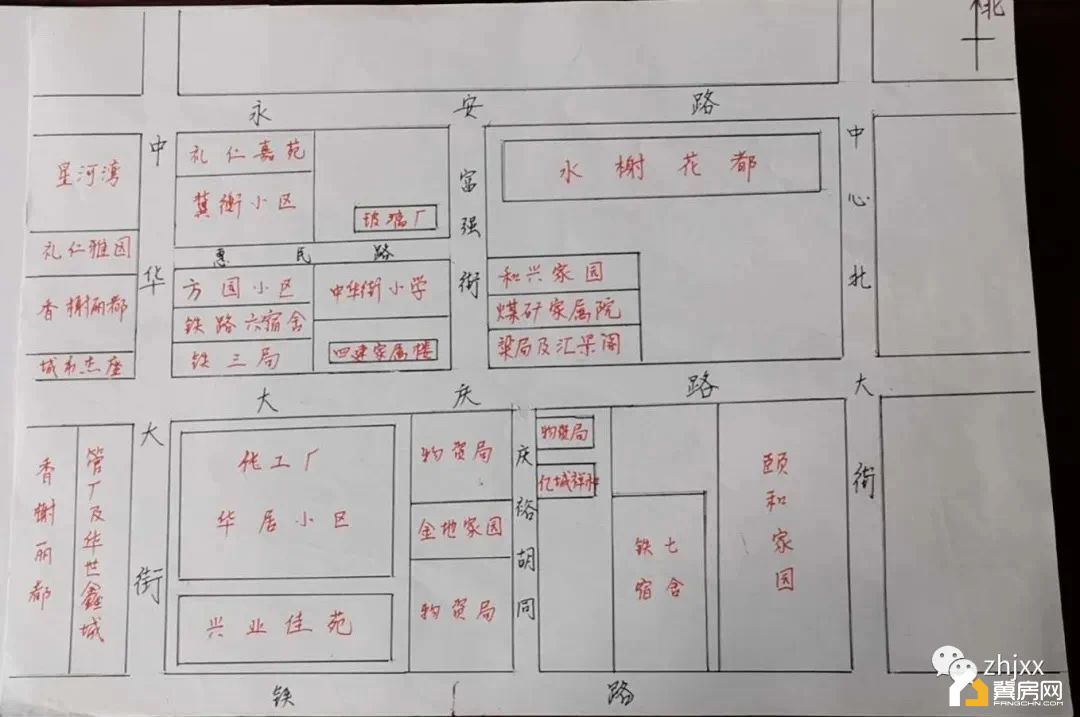 北
永安路
中华大街
富强街
中心北大街
星河湾
礼仁雅园
香榭丽都
城市杰座
礼仁嘉苑
冀衡小区
玻璃厂
水榭花都
惠民路
方园小区
铁路六宿舍
铁三局
中华街小学
四建家属楼
和兴家园
煤矿家属院
梁局及汇景阁
大庆路
香榭丽都
管厂及华世鑫城
化工厂
华居小区
兴业佳苑
物资局
金地家园
物资局
庆裕胡同
物资局
亿城祥和
铁七
宿舍
颐和家园
铁路
zhjxx
冀房网
FANGCHN.COM